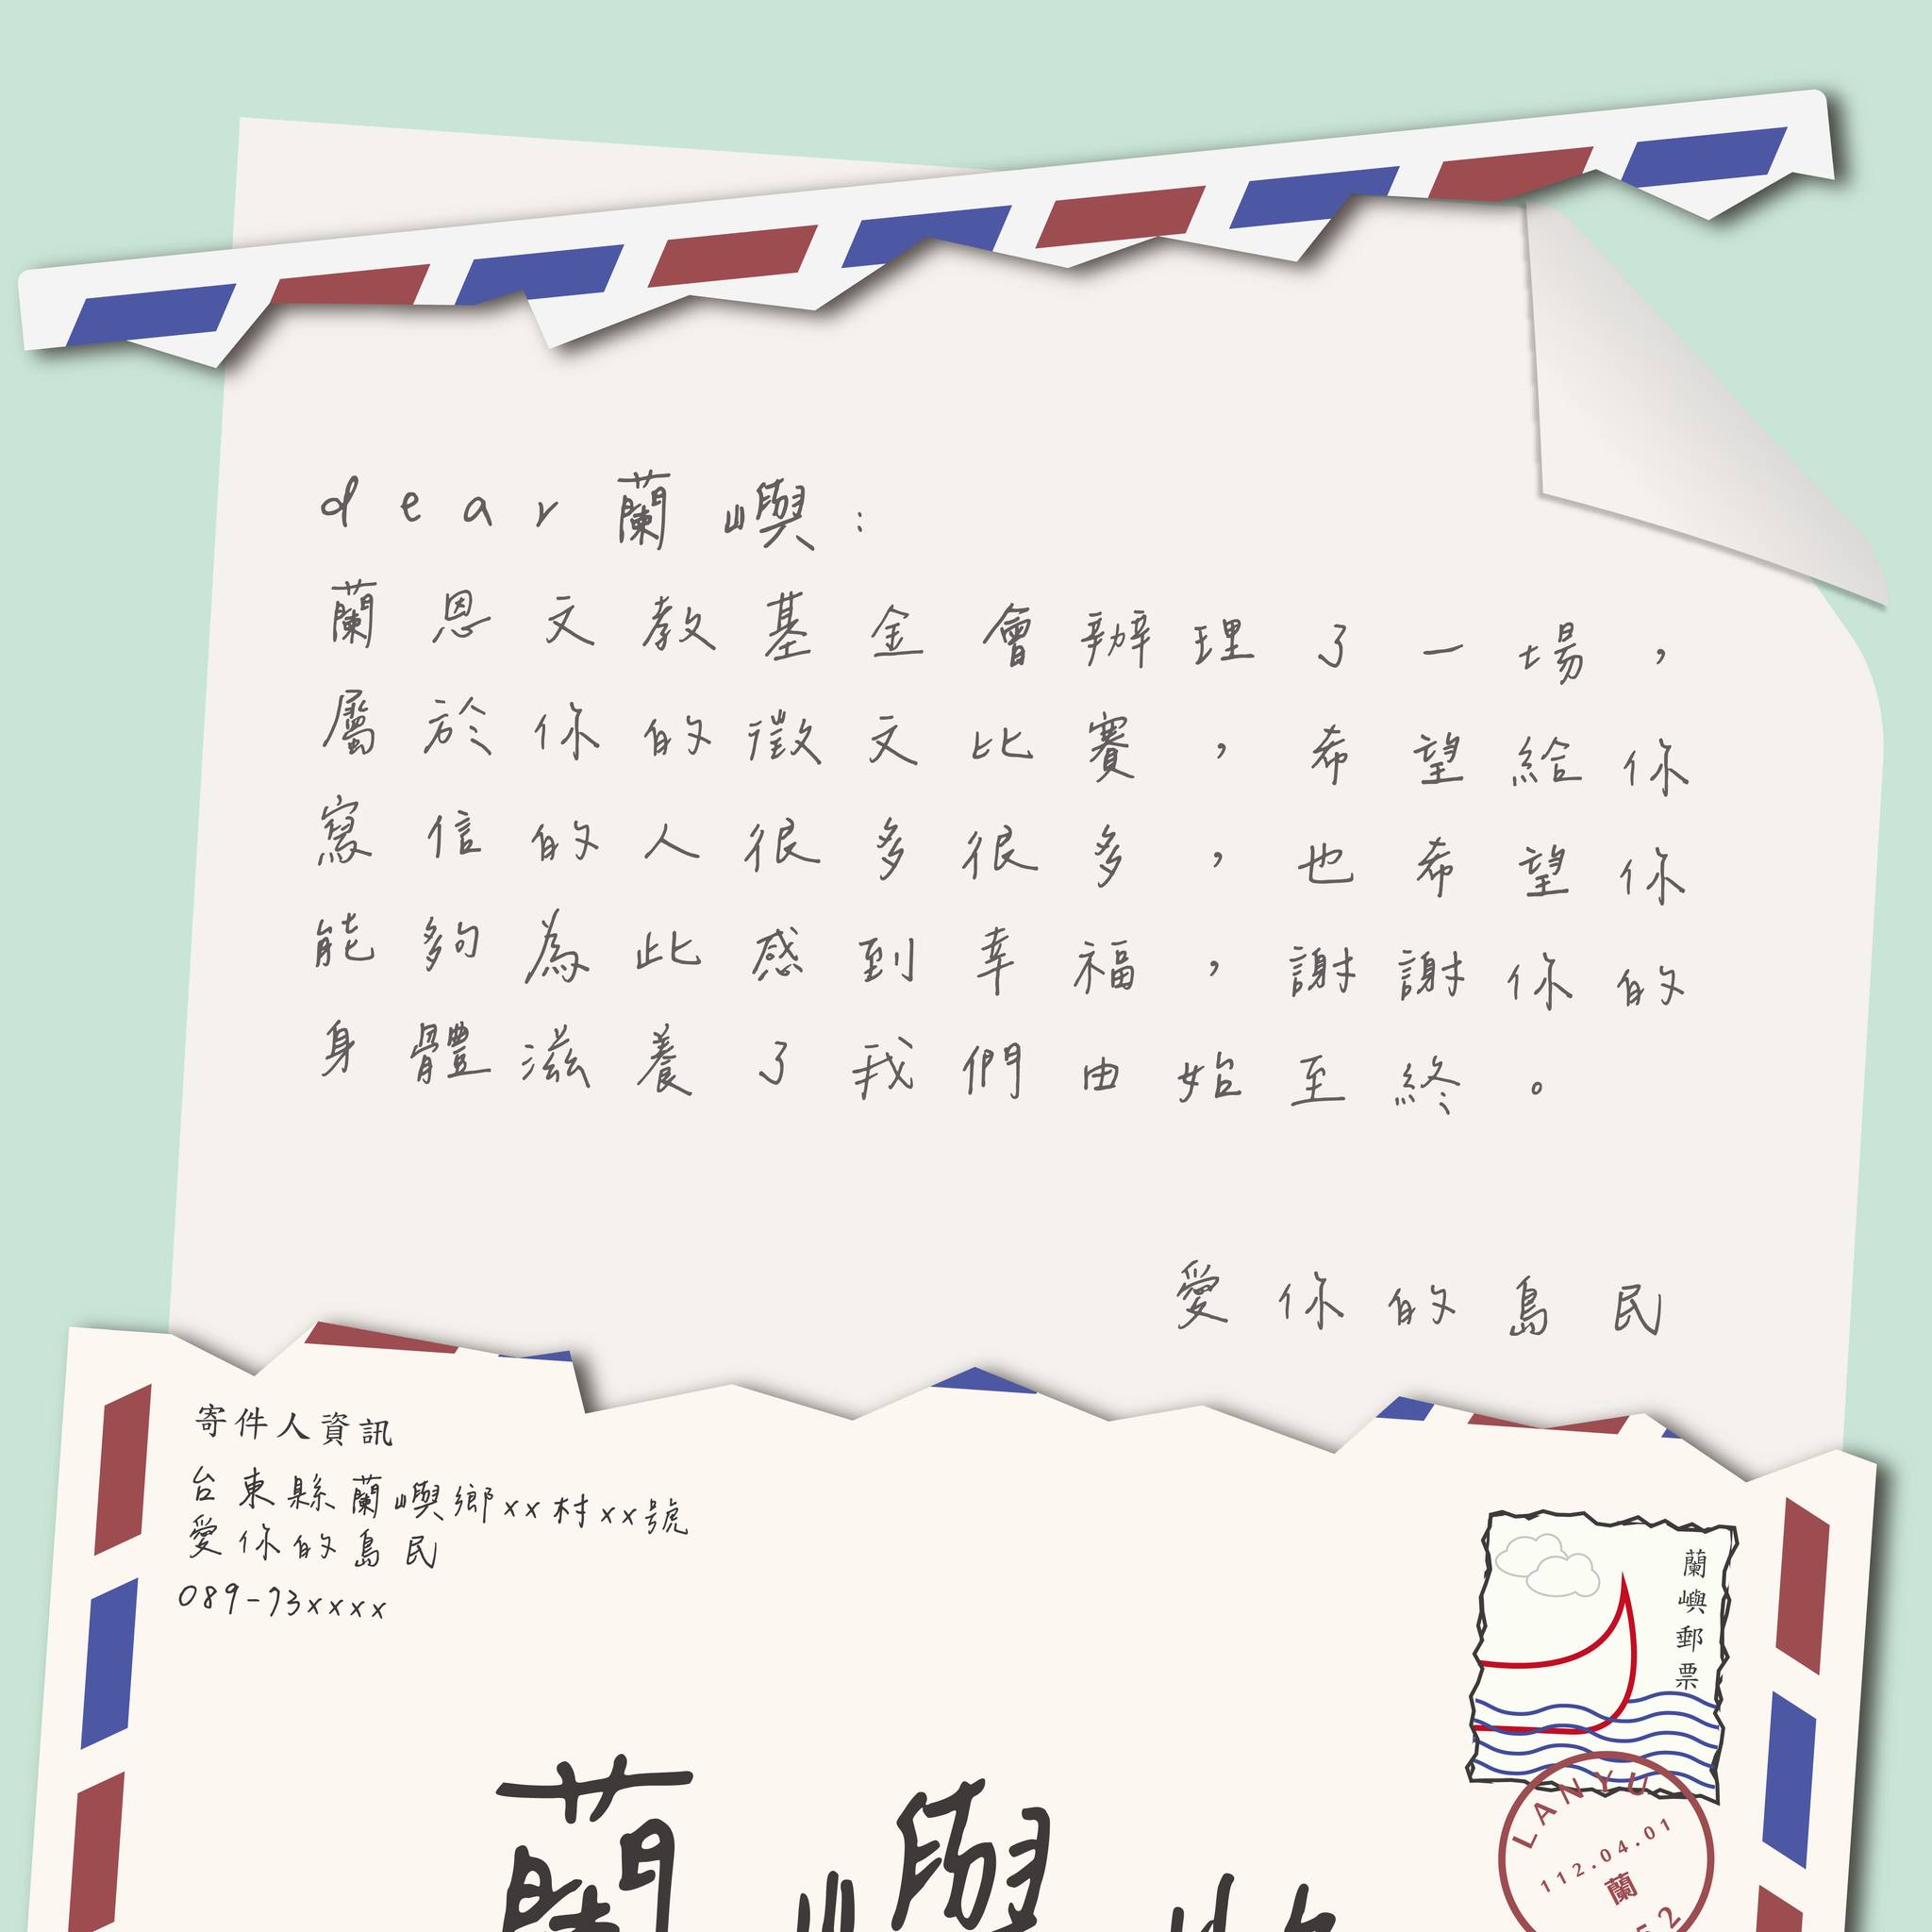 dear蘭嶼：
蘭恩文教基金會辦理了一場，
屬於你的徵文比賽，希望給你
寫信的人很多很多，也希望你
能夠為此感到幸福，謝謝你的
身體滋養了我們由始至終。
愛你的島民
寄件人資訊
台東縣蘭嶼鄉xx村xx號
愛你的島民
089-73xxxx
蘭嶼郵票
LANYU
112.04.01
蘭
52
蘭嶼